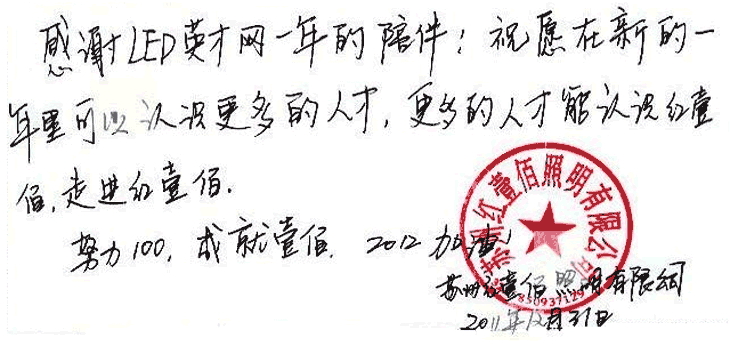 感谢LED英才网一年的陪伴！祝愿在新的一
年里可以认识更多的人才，更多的人才能认识红壹
佰，走进红壹佰．
努力100，成就壹佰．2012加油！
苏州红壹佰照明有限公司
苏州红壹佰照明有限公司
2011年12月31日